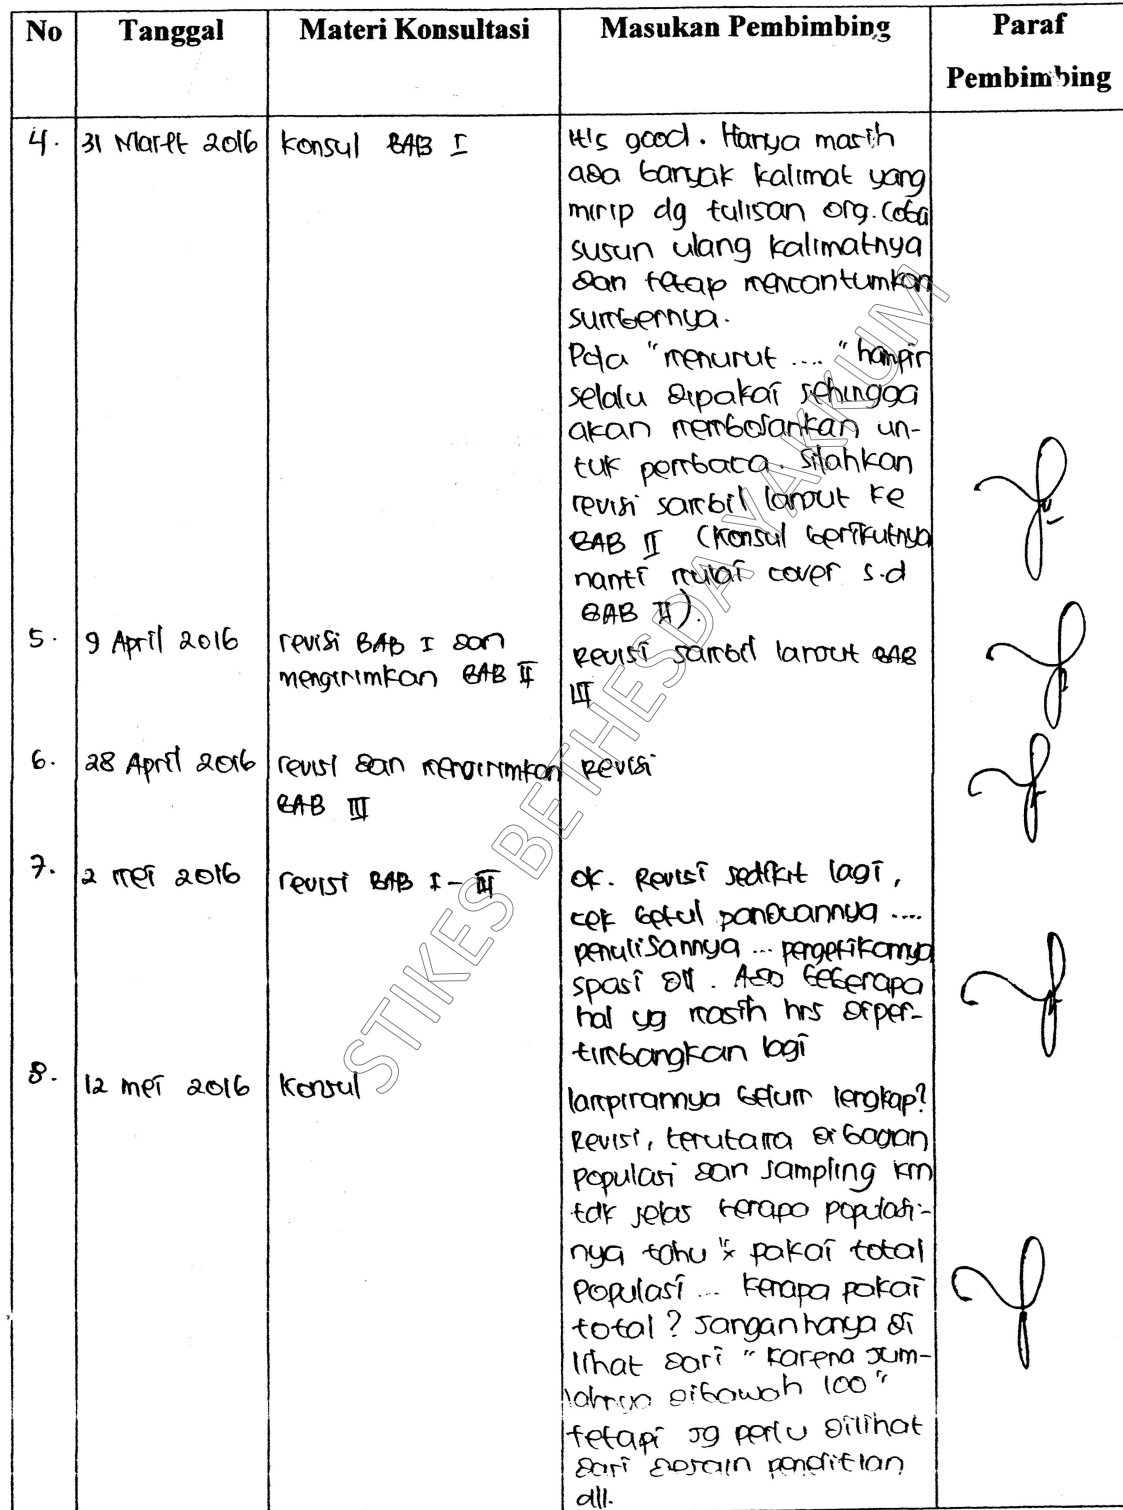 No Tanggal Materi Konsultasi Masukan Pembimbing Paraf
Pembimbing
4. 31 Maret 2016 konsul BAB I It's good. Hanya masih
ada banyak kalimat yang
mirip dg tulisan org. Coba
susun ulang kalimatnya
dan tetap mencantumkan
sumbernya.
Pola "menurut ...." hampir
selalu dipakai sehingga
akan membosankan un-
tuk pembaca. Silahkan
revisi sambil lanjut ke
BAB II (konsul berikutnya
nanti mulai cover s.d
BAB II).
5. 9 April 2016 revisi BAB I dan Revisi sambil lanjut BAB
mengirimkan BAB II III
6. 28 April 2016 revisi dan mengirimkan Revisi
BAB III
7. 2 mei 2016 revisi BAB I - III ok. Revisi sedikit lagi,
cek betul panduannya ....
penulisannya ... pengetikannya
spasi dll. Ada beberapa
hal yg masih hrs diper-
timbangkan lagi
8. 12 mei 2016 konsul lampirannya belum lengkap?
Revisi, terutama di bagian
populasi dan sampling krn
tdk jelas berapa populasi-
nya tahu" pakai total
populasi ... kenapa pakai
total? Jangan hanya di
lihat dari "karena jum-
lahnya dibawah 100"
tetapi jg perlu dilihat
dari desain penelitian
dll.
STIKES BETHESDA YAKKUM